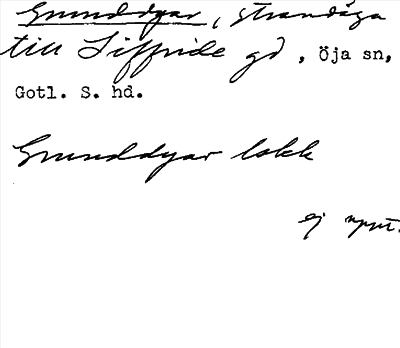 Grunddyar, strandäga
till Siffride gd, Öja sn,
Gotl. S. hd.
Grunddyar lokk
ej uppt.